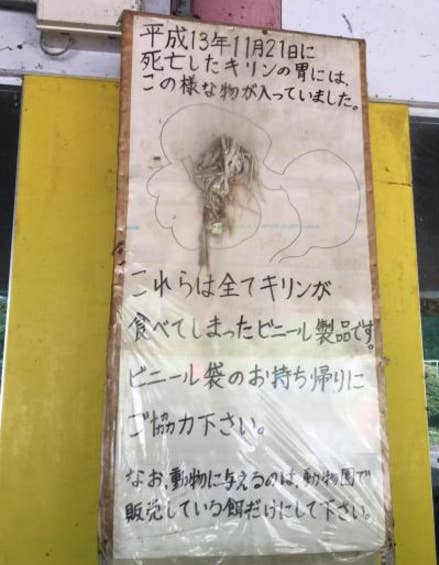 平成13年11月21日に
死亡したキリンの胃には、
この様な物が入っていました。
これらは全てキリンが
食べてしまったビニール製品です。
ビニール袋のお持ち帰りに
ご協力下さい。
なお、動物に与えるのは、動物園で
販売している餌だけにして下さい。